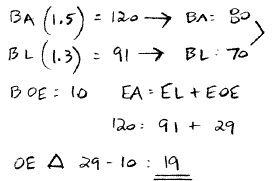 BA (1.5) = 120 → BA: 80
BL (1.3) = 91 → BL: 70
BOE = 10 EA = EL + EOE
120 = 91 + 29
OE Δ 29 - 10 : 19